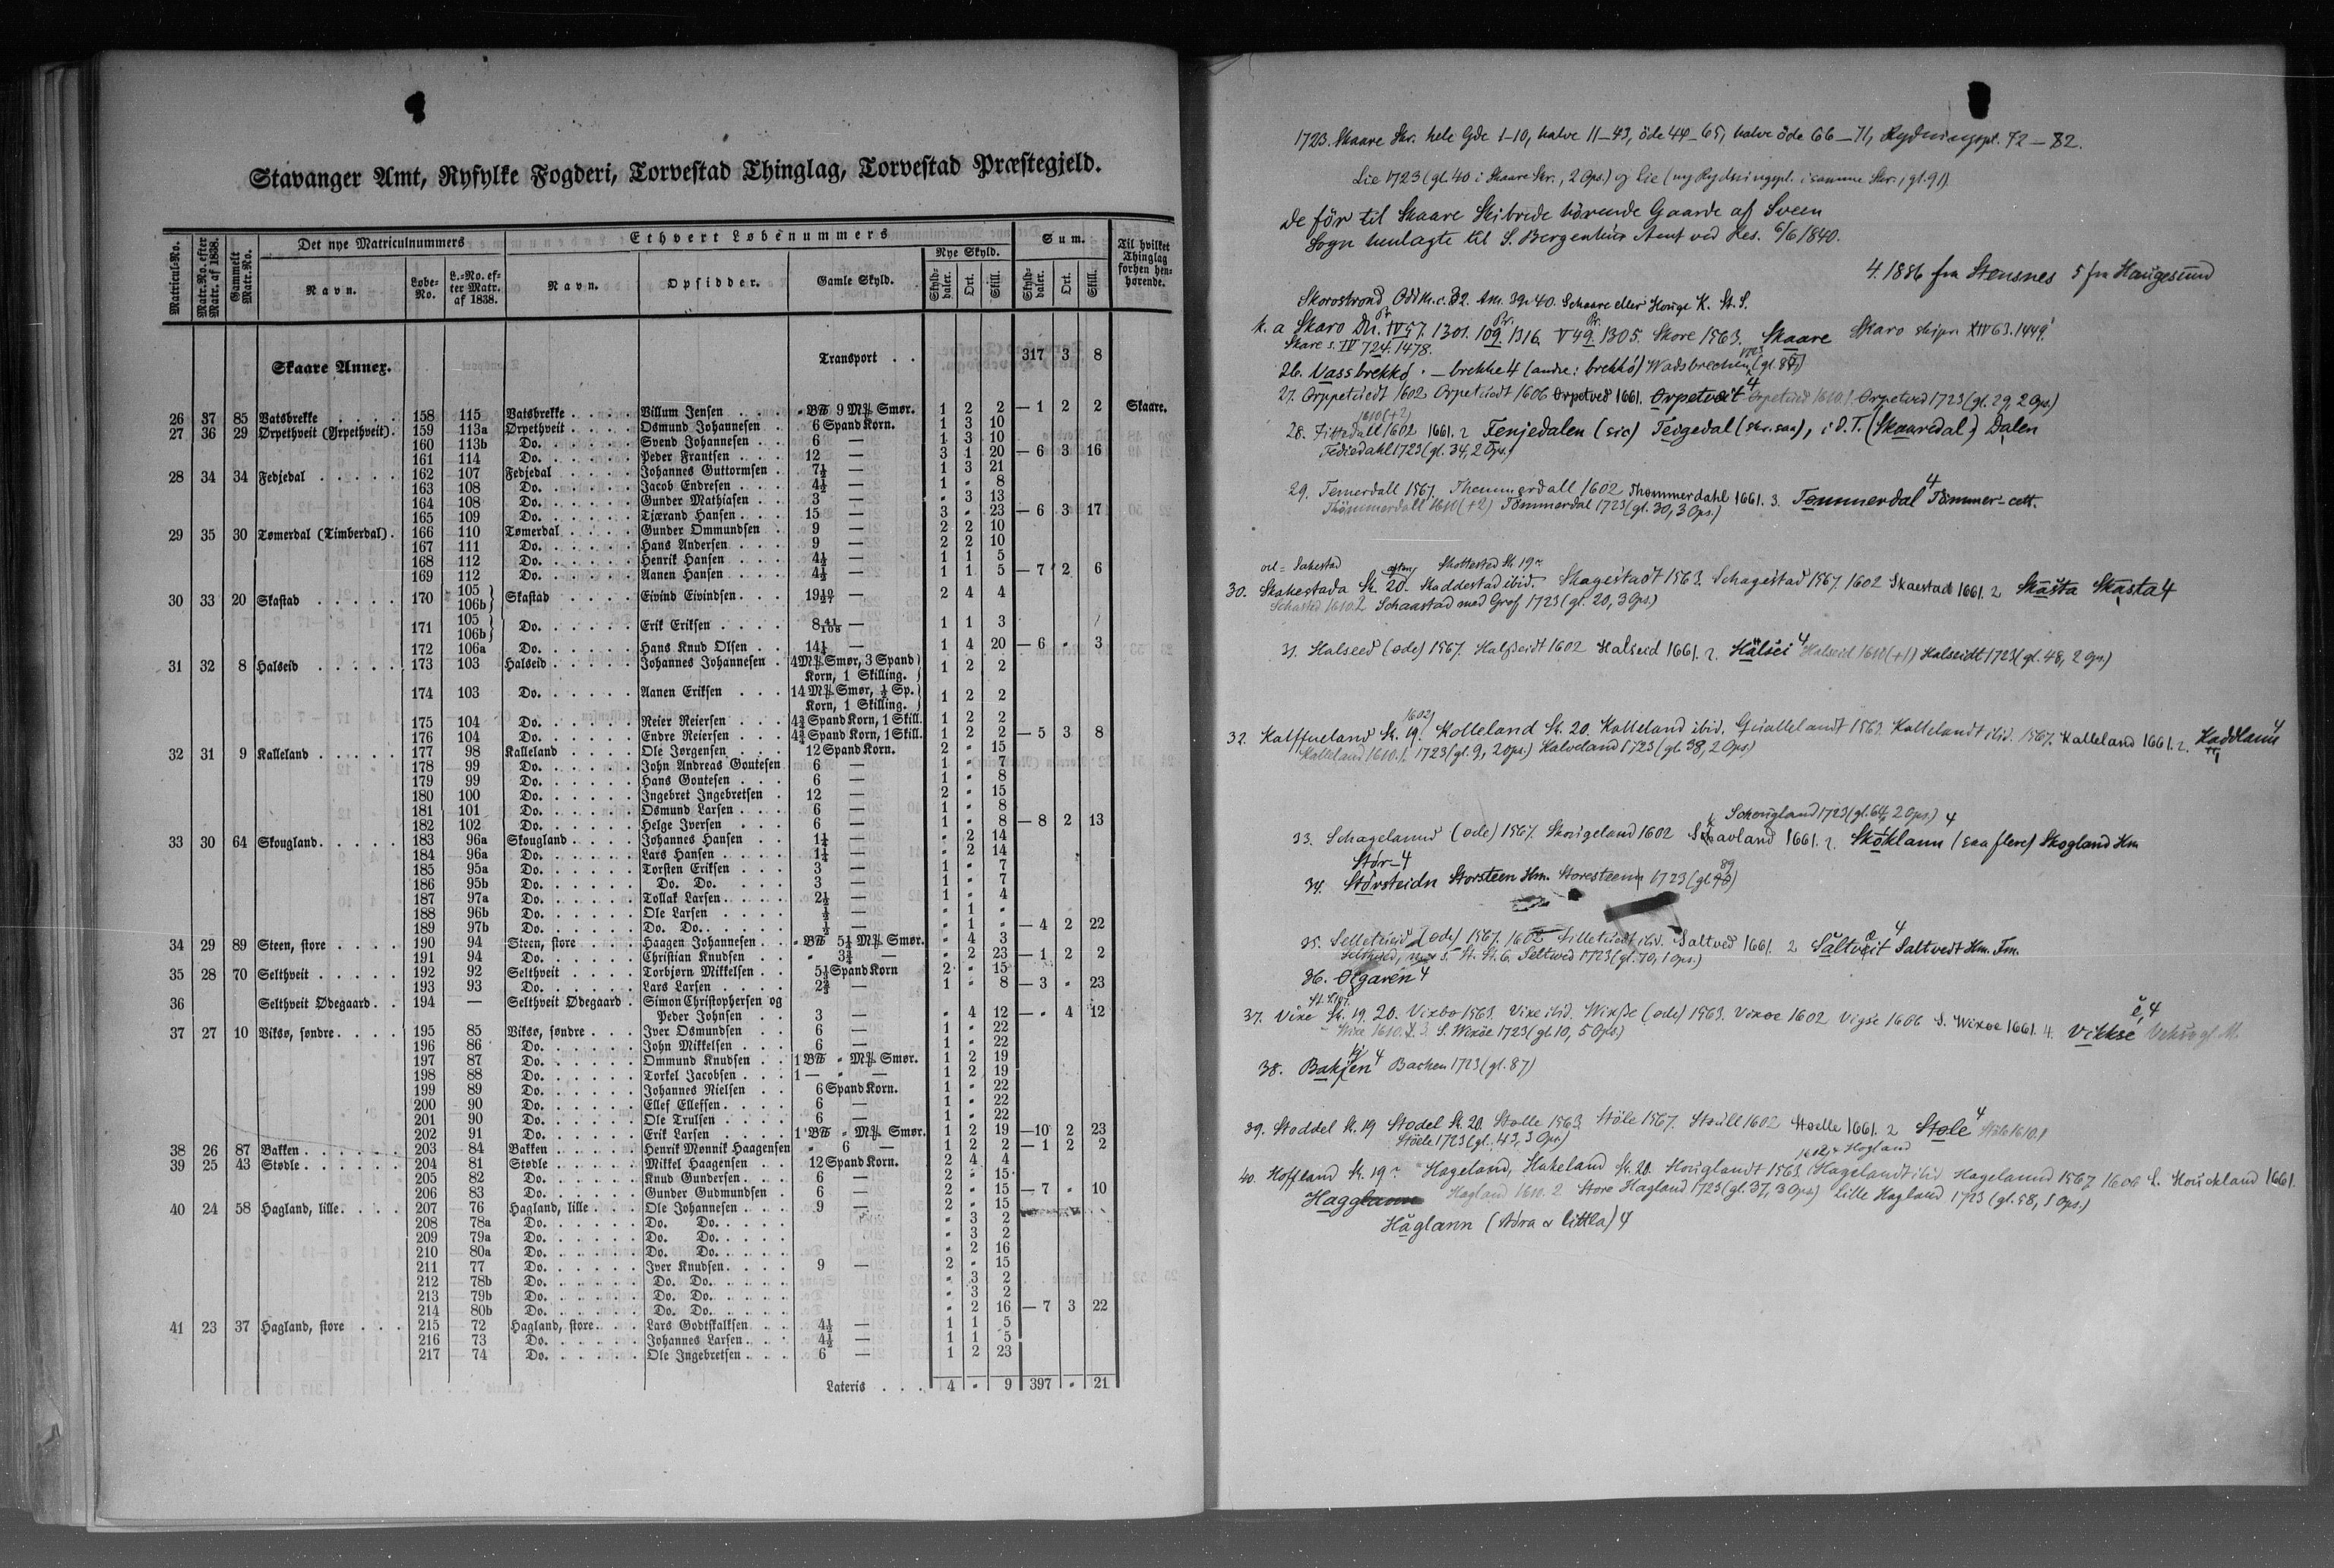 Stavanger Amt, Ryfylke Fogderi, Torvestad Thinglag, Torvestad Præstegjeld.
Matricul-No. Matr.-No. efter Matr. af 1838. Gammelt Matr.-No. Det nye Matriculnummers Ethvert Løbenummers Sum. Til hvilket Thinglag forhen henhørende.
Navn. Løbe-No. L.-No. efter Matr. af 1838. Navn. Opsidder. Gamle Skyld. Nye Skyld. Skylddaler. Ort. Skill. Skylddaler. Ort. Skill.
Skaare Annex. Transport . . 317 3 8
26 37 85 Vatsbrekke . . . . . 158 115 Vatsbrekke . . . . Villum Jensen . . . „ B℔ 9 M℔ Smør. 1 2 2 — 1 2 2 Skaare.
27 36 29 Ørpethveit (Yrpethveit). 159 113a Ørpethveit . . . . Osmund Johannesen . . 6 Spand Korn. 1 3 10
160 113b Do. . . . . . Svend Johannesen . . . 6 — 1 3 10
161 114 Do. . . . . . Peder Frantsen . . . 12 — 3 1 20 — 6 3 16
28 34 34 Fedjedal . . . . . 162 107 Fedjedal . . . . Johannes Guttormsen . 7½ — 1 3 21
163 108 Do. . . . . . Jacob Endresen . . . 4½ — 1 „ 8
164 108 Do. . . . . . Gunder Mathiasen . . 3 — „ 3 13
165 109 Do. . . . . . Tjærand Hansen . . . 15 — 3 „ 23 — 6 3 17
29 35 30 Tømerdal (Timberdal) . 166 110 Tømerdal . . . . Gunder Ommundsen . 9 — 2 2 10
167 111 Do. . . . . . Hans Andersen . . . 9 — 2 2 10
168 112 Do. . . . . . Henrik Hansen . . . 4½ — 1 1 5
169 112 Do. . . . . . Aanen Hansen . . . 4½ — 1 1 5 — 7 2 6
30 33 20 Skastad . . . . . 170 105 106b} Skastad . . . . Eivind Eivindsen . . . 19 10/27 — 2 4 4
171 105 106b} Do. . . . . . Erik Eriksen . . . . 8 41/108 — 1 1 3
172 106a Do. . . . . . Hans Knud Olsen . . 14¼ — 1 4 20 — 6 „ 3
31 32 8 Halseid . . . . . 173 103 Halseid . . . . . Johannes Johannesen . 4 M℔ Smør, 3 Spand Korn, 1 Skilling. } 1 2 2
174 103 Do. . . . . . Aanen Eriksen . . . 14 M℔ Smør, ½ Sp. Korn, 1 Skilling. } 1 2 2
175 104 Do. . . . . . Reier Reiersen . . . 4¾ Spand Korn, 1 Skill. 1 2 2
176 104 Do. . . . . . Endre Reiersen . . . 4¾ Spand Korn, 1 Skill. 1 2 2 — 5 3 8
32 31 9 Kalleland . . . . . 177 98 Kalleland . . . . Ole Jørgensen . . . 12 Spand Korn. 2 „ 15
178 99 Do. . . . . . John Andreas Goutesen 6 — 1 „ 7
179 99 Do. . . . . . Hans Goutesen . . . 6 — 1 „ 8
180 100 Do. . . . . . Ingebret Ingebretsen . 12 — 2 „ 15
181 101 Do. . . . . . Osmund Larsen . . . 6 — 1 „ 8
182 102 Do. . . . . . Helge Iversen . . . 6 — 1 „ 8 — 8 2 13
33 30 64 Skougland . . . . . 183 96a Skougland . . . . Johannes Hansen . . 1¼ — „ 2 14
184 96a Do. . . . . . Lars Hansen . . . . 1¼ — „ 2 14
185 95a Do. . . . . . Torsten Eriksen . . . 3 — 1 „ 7
186 95b Do. . . . . . Do. Do. . . . 3 — 1 „ 7
187 97a Do. . . . . . Tollak Larsen . . . . 2½ — 1 „ 4
188 96b Do. . . . . . Ole Larsen . . . . ½ — „ 1 „
189 97b Do. . . . . . Do. Do. . . . . ½ — „ 1 „ — 4 2 22
34 29 89 Steen, store . . . . 190 94 Steen, store . . . Haagen Johannesen . . „ B℔ 5¼ M℔ Smør. „ 4 3
191 94 Do. . . . . . Christian Knudsen . . „ 3¾ — „ 2 23 — 1 2 2
35 28 70 Selthveit . . . . . 192 92 Selthveit . . . . Torbjørn Mikkelsen . . 5⅓ Spand Korn 2 „ 15
193 93 Do. . . . . . Lars Larsen . . . . 2⅔ — 1 „ 8 — 3 „ 23
36 Selthveit Ødegaard . . 194 — Selthveit Ødegaard . Simon Christophersen og
Peder Johnsen . . 3 — „ 4 12 — „ 4 12
37 27 10 Viksø, søndre . . . . 195 85 Viksø, søndre . . . Iver Osmundsen . . 6 — 1 „ 22
196 86 Do. . . . . . John Mikkelsen . . . 6 — 1 „ 22
197 87 Do. . . . . . Ommund Knudsen . . 1 B℔ „ M℔ Smør. 1 2 19
198 88 Do. . . . . . Torkel Jacobsen . . . 1 — „ — 1 2 19
199 89 Do. . . . . . Johannes Nielsen . . 6 Spand Korn. 1 „ 22
200 90 Do. . . . . . Ellef Ellefsen . . . . 6 — 1 „ 22
201 90 Do. . . . . . Ole Trulsen . . . . 6 — 1 „ 22
202 91 Do. . . . . . Erik Larsen . . . . 1 B℔ „ M℔ Smør. 1 2 19 —10 2 23
38 26 87 Bakken . . . . . . 203 84 Bakken . . . . . Henrik Monnik Haagensen „ 6 — 1 2 2 — 1 2 2
39 25 43 Stødle . . . . . . 204 81 Stødle . . . . . Mikkel Haagensen . . 12 Spand Korn. 2 4 4
205 82 Do. . . . . . Knud Gundersen . . . 6 — 2 „ 15
206 83 Do. . . . . . Gunder Gudmundsen . 6 — 2 „ 15 — 7 „ 10
40 24 58 Hagland, lille . . . . 207 76 Hagland, lille . . . Ole Johannesen . . . 9 — 2 „ 15
208 78a Do. . . . . . Do. Do. . . . . „ 3 2
209 79a Do. . . . . . Do. Do. . . . . „ 3 2
210 80a Do. . . . . . Do. Do. . . . . „ 2 16
211 77 Do. . . . . . Iver Knudsen . . . . 9 — 2 „ 15
212 78b Do. . . . . . Do. Do. . . . . „ 3 2
213 79b Do. . . . . . Do. Do. . . . . „ 3 2
214 80b Do. . . . . . Do. Do. . . . . „ 2 16 — 7 3 22
41 23 37 Hagland, store . . . 215 72 Hagland, store . . . Lars Godtskalksen . . 4½ — 1 1 5
216 73 Do. . . . . . Johannes Larsen . . . 4½ — 1 1 5
217 74 Do. . . . . . Ole Ingebretsen . . . 6 — 1 2 23
Lateris . . . 4 „ 9 397 „ 21
1723. Skaare Skr. hele Gde 1–10, halve 11–43, öde 44–65, halve öde 66–71, Rydningspl. 72–82.
Lie 1723 (gl. 40 i Skaare Skr., 2 Ops.) og Lie (ny Rydningspl. i samme Skr., gl. 91).
De för til Skaare Skibrede hörende Gaarde af Sveen
Sogn henlagte til S. Bergenhus Amt ved Res. 6/6 1840.
4. 1886 fra Stensnes 5 fra Haugesund
Skorostrond Odd M. c. 32. Am. 39. 40. Schaare eller Houge K. St. S.
k. a Skaro Dn. IV 57. 1301. 109. 1316. V 49. 1305. Skore 1563. Skaare Skaro skipr. XIV 63. 1449.
Skare s. IV 724. 1478.
26. Vassbrekko . – brekke 4 (andre: brekkö) Wadsbrechen 1723 (gl. 85)
27. Orppetuedt 1602 Orpetuedt 1606 Orpetved 1661. Orpetveit 4 Orpetued 1610.1. Orpetved 1723 (gl. 29, 2 Ops.)
28. 1602 1610 (+2) 1661. 2 Fenjedalen (sic) Tedgedal (skr. saa), i D. T. (Skaaredal) Dalen
Fediedahl 1723 (gl. 34, 2 Ops.)
29. Temerdall 1567. Themmerdall 1602 Thommerdahl 1661. 3. Tømmerdal 4 Tömmer- cett.
Thömmerdall 1610 (+2) Tömmerdal 1723 (gl. 30, 3 Ops.)
Skottested St. 19
30. Skakestada St. 20. Skaddestad ibid. Skagestadt 1563. Schagestad 1567. 1602 Skaestad 1661. 2 Skåsta Skåsta 4
Schasted 1610.2 Schaastad med Graf 1723 (gl. 20, 3 Ops.)
31. Halseed (öde) 1567. Halsseidt 1602 Halseid 1661. 2. Hålsei 4 Halseid 1610 (+1) Halseidt 1723 (gl. 48, 2 Ops.)
32. Kalffueland St. 19. 1602 Kolleland St. 20. Kalleland ibid. Guallelandt 1563. Kallelandt ibid. 1567. Kalleland 1661. 2. Kaddlann 4
Kalleland 1610.1. 1723 (gl. 9, 2 Ops.) Halveland 1723 (gl. 38, 2 Ops.)
Schougland 1723 (gl. 64, 2 Ops.) 4
33. Schagelannd (öde) 1567. Skougeland 1602 Skavland 1661. 2. Skoklann (saa flere) Skogland Hm
Stor- 4
34. Störsteidn Storsteen Hm. Storesteen 1723 (gl. 89)
35. (öde) 1567. 1602 Silletuedt ibid. Saltved 1661. 2 Såltveit 4 Saltvedt Hm. Fm.
St. St. 6. Seltved 1723 (gl. 70, 1 Ops.)
36. Øygaren 4
37. Vixe St. 19. 20. Vixbo 1563. Vixe ibid. Wixsze (öde) 1563. Vixoe 1602 Vigse 1606 S. Wixoe 1661. 4. Vikkse 4
Wixe 1610. S. Wixöe 1723 (gl. 10, 5 Ops.)
38. Bakjen 4 Bachen 1723 (gl. 87)
39. Stoddel St. 19 Stodel St. 20. Stolle 1563. Stöle 1567. Stuill 1602 Stoelle 1661. 2 Stöle 4 Støle 1610.1
Stöele 1723 (gl. 43, 3 Ops.)
40. Hoffland St. 19 Hageland, Hakeland St. 20. Houglandt 1563. Hagelandt ibid. Hagelannd 1567. 1606 L. Houckland 1661.
Hagglann Hagland 1610. 2 Store Hagland 1723 (gl. 37, 3 Ops.) Lille Hagland 1723 (gl. 58, 1 Ops.)
Håglann (stóra & littla) 4